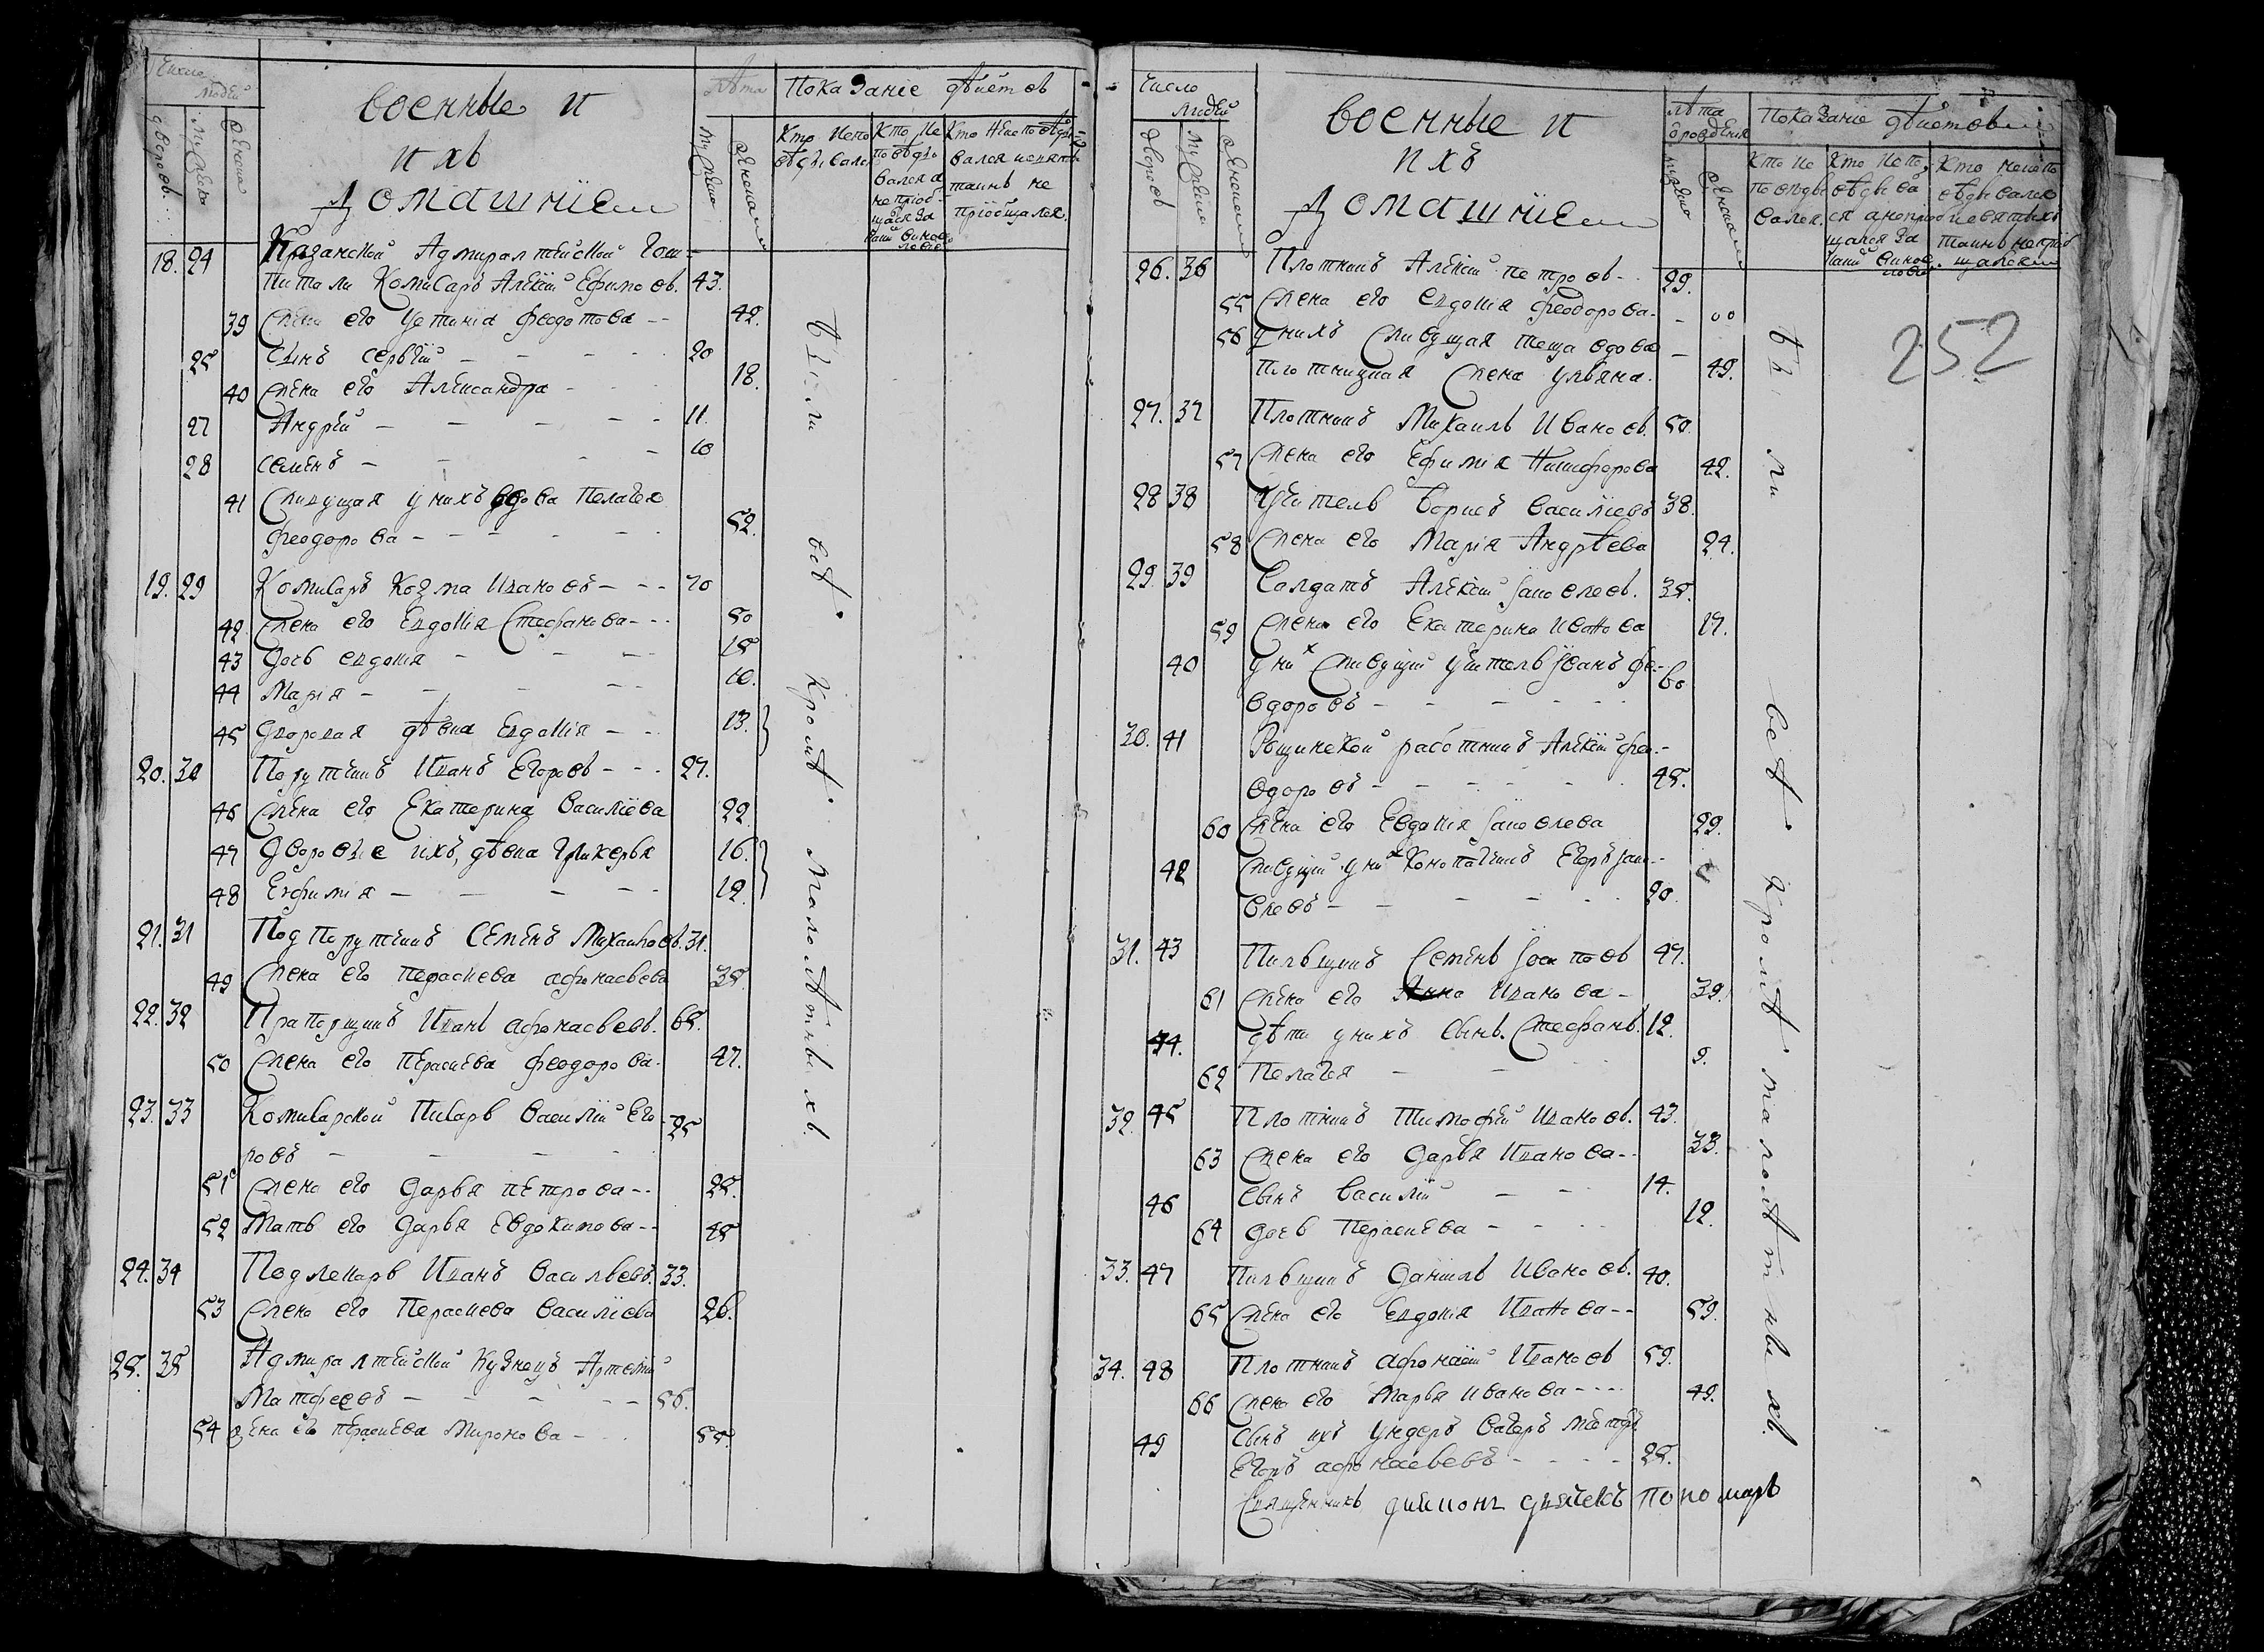 Число людей
дворовъ
мужеска
женска
Военные и
ихъ
Домашніе
Лѣта
мужеска
женска
Показаніе дѣйствъ
Кто испо
вѣдывался
Кто ис
повѣдо
вался а
не пріоб
щался за
какой винос
ловіе
Кто неисповѣды
вался и святыхъ
таинъ не
пріобщался.
18. 24 Казанской Адмиралтейской Гош-
питали Комисаръ Алексѣй Ефимовъ. 43.
39 Жена его Устиніа Феодотова -- 42.
25 Сынъ Сергѣй - - - 20
40 Жена его Александра - 18.
27 Андрей - - - - 11.
28 Семенъ - - - 10
41 Живущая у нихъ вдова Пелагея
Феодорова - - - - 52.
19. 29 Комисаръ Козма Ивановъ - - - 70
42 Жена его Евдокія Стефанова - - - 50
43 Дочь Евдокія - - - 15
44 Марія - - - - 10.
45 Дворовая дѣвка Евдокія - - 13.
20. 30 Порутчикъ Иванъ Егоровъ - - - 27.
46 Жена его Екатерина Василіева 22.
47 Дворовые ихъ, дѣвка Гликерья 16.
48 Евфимія - - - - 12.
21. 31 Подпорутчикъ Семенъ Михаиловъ. 31.
49 Жена его Параскева Афонасьева 35.
22. 32 Прапорщикъ Иванъ Афонасьевъ. 65.
50 Жена его Параскева Феодорова. 47.
23. 33 Комисарской Писарь Василій Его
ровъ - - - 25
51 Жена его Дарья Петрова -- 25.
52 Мать его Дарья Евдокимова -- 45
24. 34 Подлекарь Иванъ Васильевъ. 33.
53 Жена его Параскева Василіева 26.
25. 35 Адмиралтейской Кузнецъ Артемій
Матфеевъ - - - - - 56.
54 Жена его Параскева Миронова - 55.
Были всѣ. Кромѣ. Малолѣтныхъ.
Число людей
дворовъ
мужеска
женска
Военные и
ихъ
Домашніе
Лѣта
рожденія
мужеска
женска
Показаніе дѣйствъ
Кто ис
повѣды
вался.
Кто испо
вѣдыва
ся а непріоб
щался за
какой винос
ловіе
Кто неиспо
вѣдывался
и святыхъ
таинъ непріоб
щался
252
26. 36 Плотникъ Алексѣй Петровъ - 29.
55 Жена его Евдокія Феодорова -
56 у нихъ Живущая теща вдова
плотницкая Жена Ульяна. 49.
27. 37 Плотникъ Михаилъ Ивановъ. 50.
57 Жена его Ефимія Никифорова 42.
28 38 Учитель Борисъ Василіевъ 38.
58 Жена его Марія Андрѣева 24.
29. 39 Салдатъ Алексѣй Іаковлевъ. 35.
59 Жена его Екатерина Иванова 27.
40 у них Живущій учитель Іванъ Фе-
одоровъ - - - - - 60
30. 41 Рощинской работникъ Алексѣй Фе-
одоровъ - - - - 45.
60 Жена его Евдокія Іаковлева 29.
42 Живущій у них Конопатчикъ Егоръ Іако-
влевъ - - - - 20.
31. 43 Пильщикъ Семенъ Іосиповъ 47.
61 Жена его Анна Иванова - 39.
44. дѣти у нихъ Сынъ. Стефанъ. 12.
62 Пелагея - - 9.
32. 45 Плотникъ Тимофѣй Ивановъ. 43.
63 Жена его Дарья Иванова -- 33.
46 Сынъ Василій - - 14.
64 Дочь Параскева - - 12.
33. 47 Пильщикъ Данилъ Ивановъ. 40.
65 Жена его Евдокія Иванова -- 59.
34. 48 Плотникъ Афонасій Ивановъ 59.
66 Жена его Марья Иванова --- 49.
49 Сынъ ихъ Ундеръ
Егоръ Афонасьевъ - - - - 25.
Были всѣ. Кромѣ. малолѣтныхъ.
Священникъ диаконъ дьячекъ пономарь